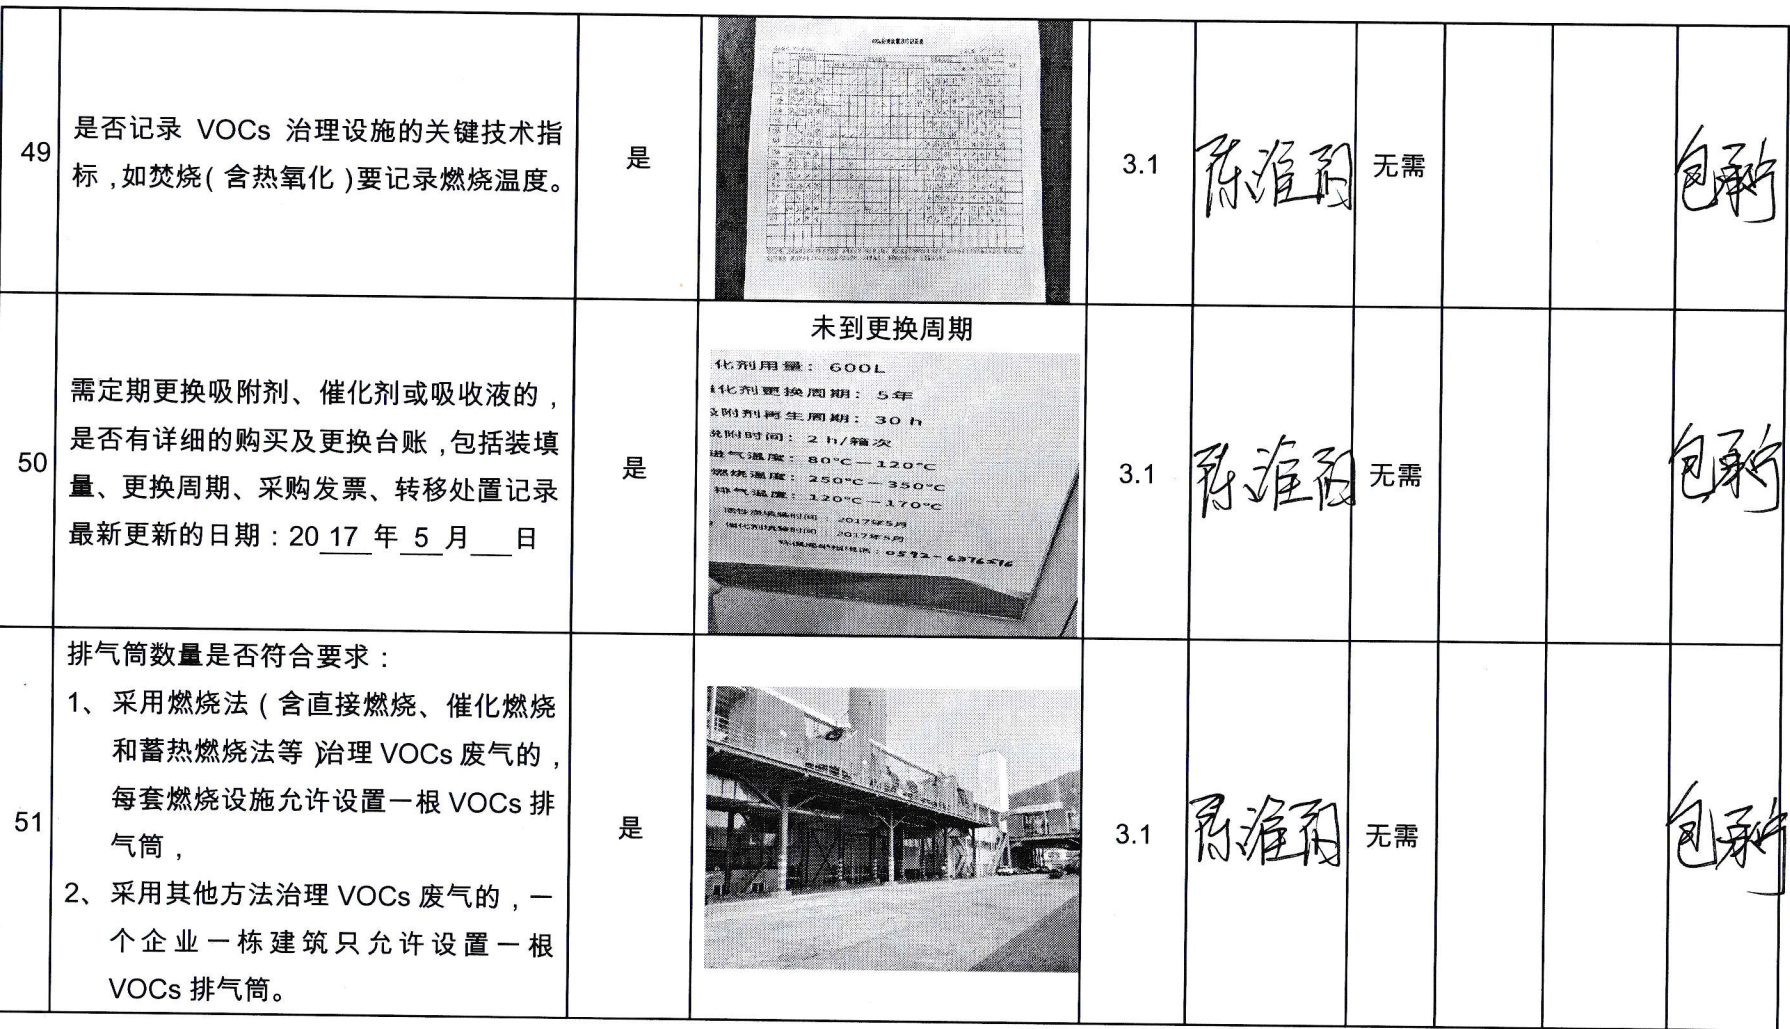 49
是否记录 VOCs 治理设施的关键技术指
标,如焚烧(含热氧化)要记录燃烧温度。
是
3.1
陈淮雨
无需
50
需定期更换吸附剂、催化剂或吸收液的,
是否有详细的购买及更换台账,包括装填
量、更换周期、采购发票、转移处置记录
最新更新的日期:20 17 年 5 月___日
是
未到更换周期
化剂用量:600L
化剂更换周期:5年
附剂再生周期:30 h
附时间:2 h/箱次
进气温度:80°C—120°C
燃烧温度:250°C—350°C
排气温度:120°C—170°C
活性炭填装时间:2017年5月
催化剂填装时间 2017年5月
3.1
陈淮雨
无需
51
排气筒数量是否符合要求:
1、采用燃烧法(含直接燃烧、催化燃烧
和蓄热燃烧法等)治理VOCs废气的,
每套燃烧设施允许设置一根VOCs排
气筒,
2、采用其他方法治理VOCs废气的,一
个企业一栋建筑只允许设置一根
VOCs排气筒。
是
3.1
陈淮雨
无需